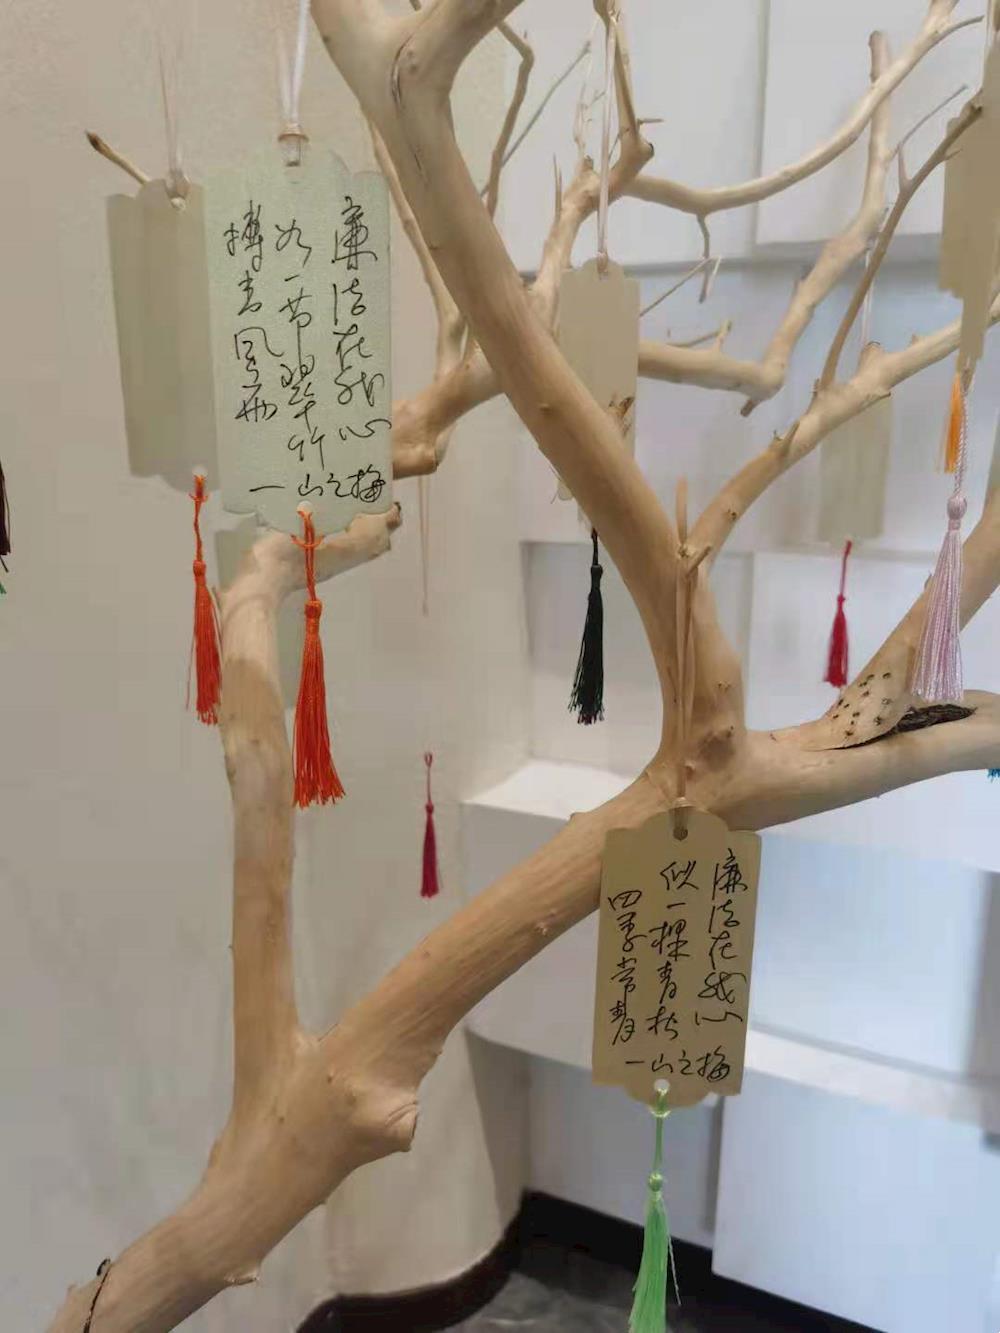 廉洁在我心
如一节翠竹
搏击风雨
一山之梅
廉洁在我心
似一棵青松
四季常青
一山之梅